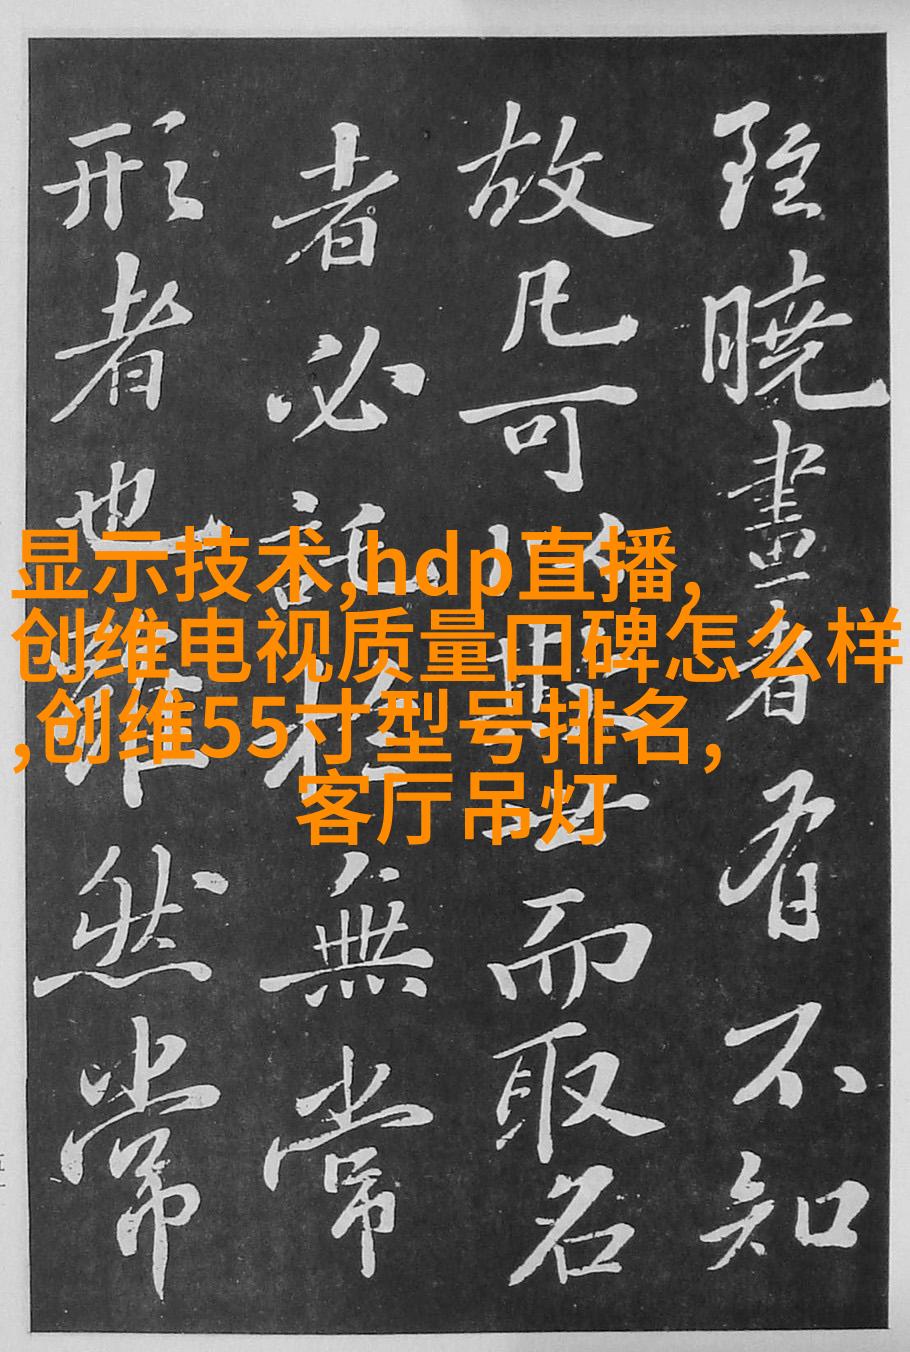 雖曉畫者有不知
故凡可以欺世而取名
者必託於無常
形者也雖然常
显示技术,hdp直播,
创维电视质量口碑怎么样
,创维55寸型号排名,
客厅吊灯